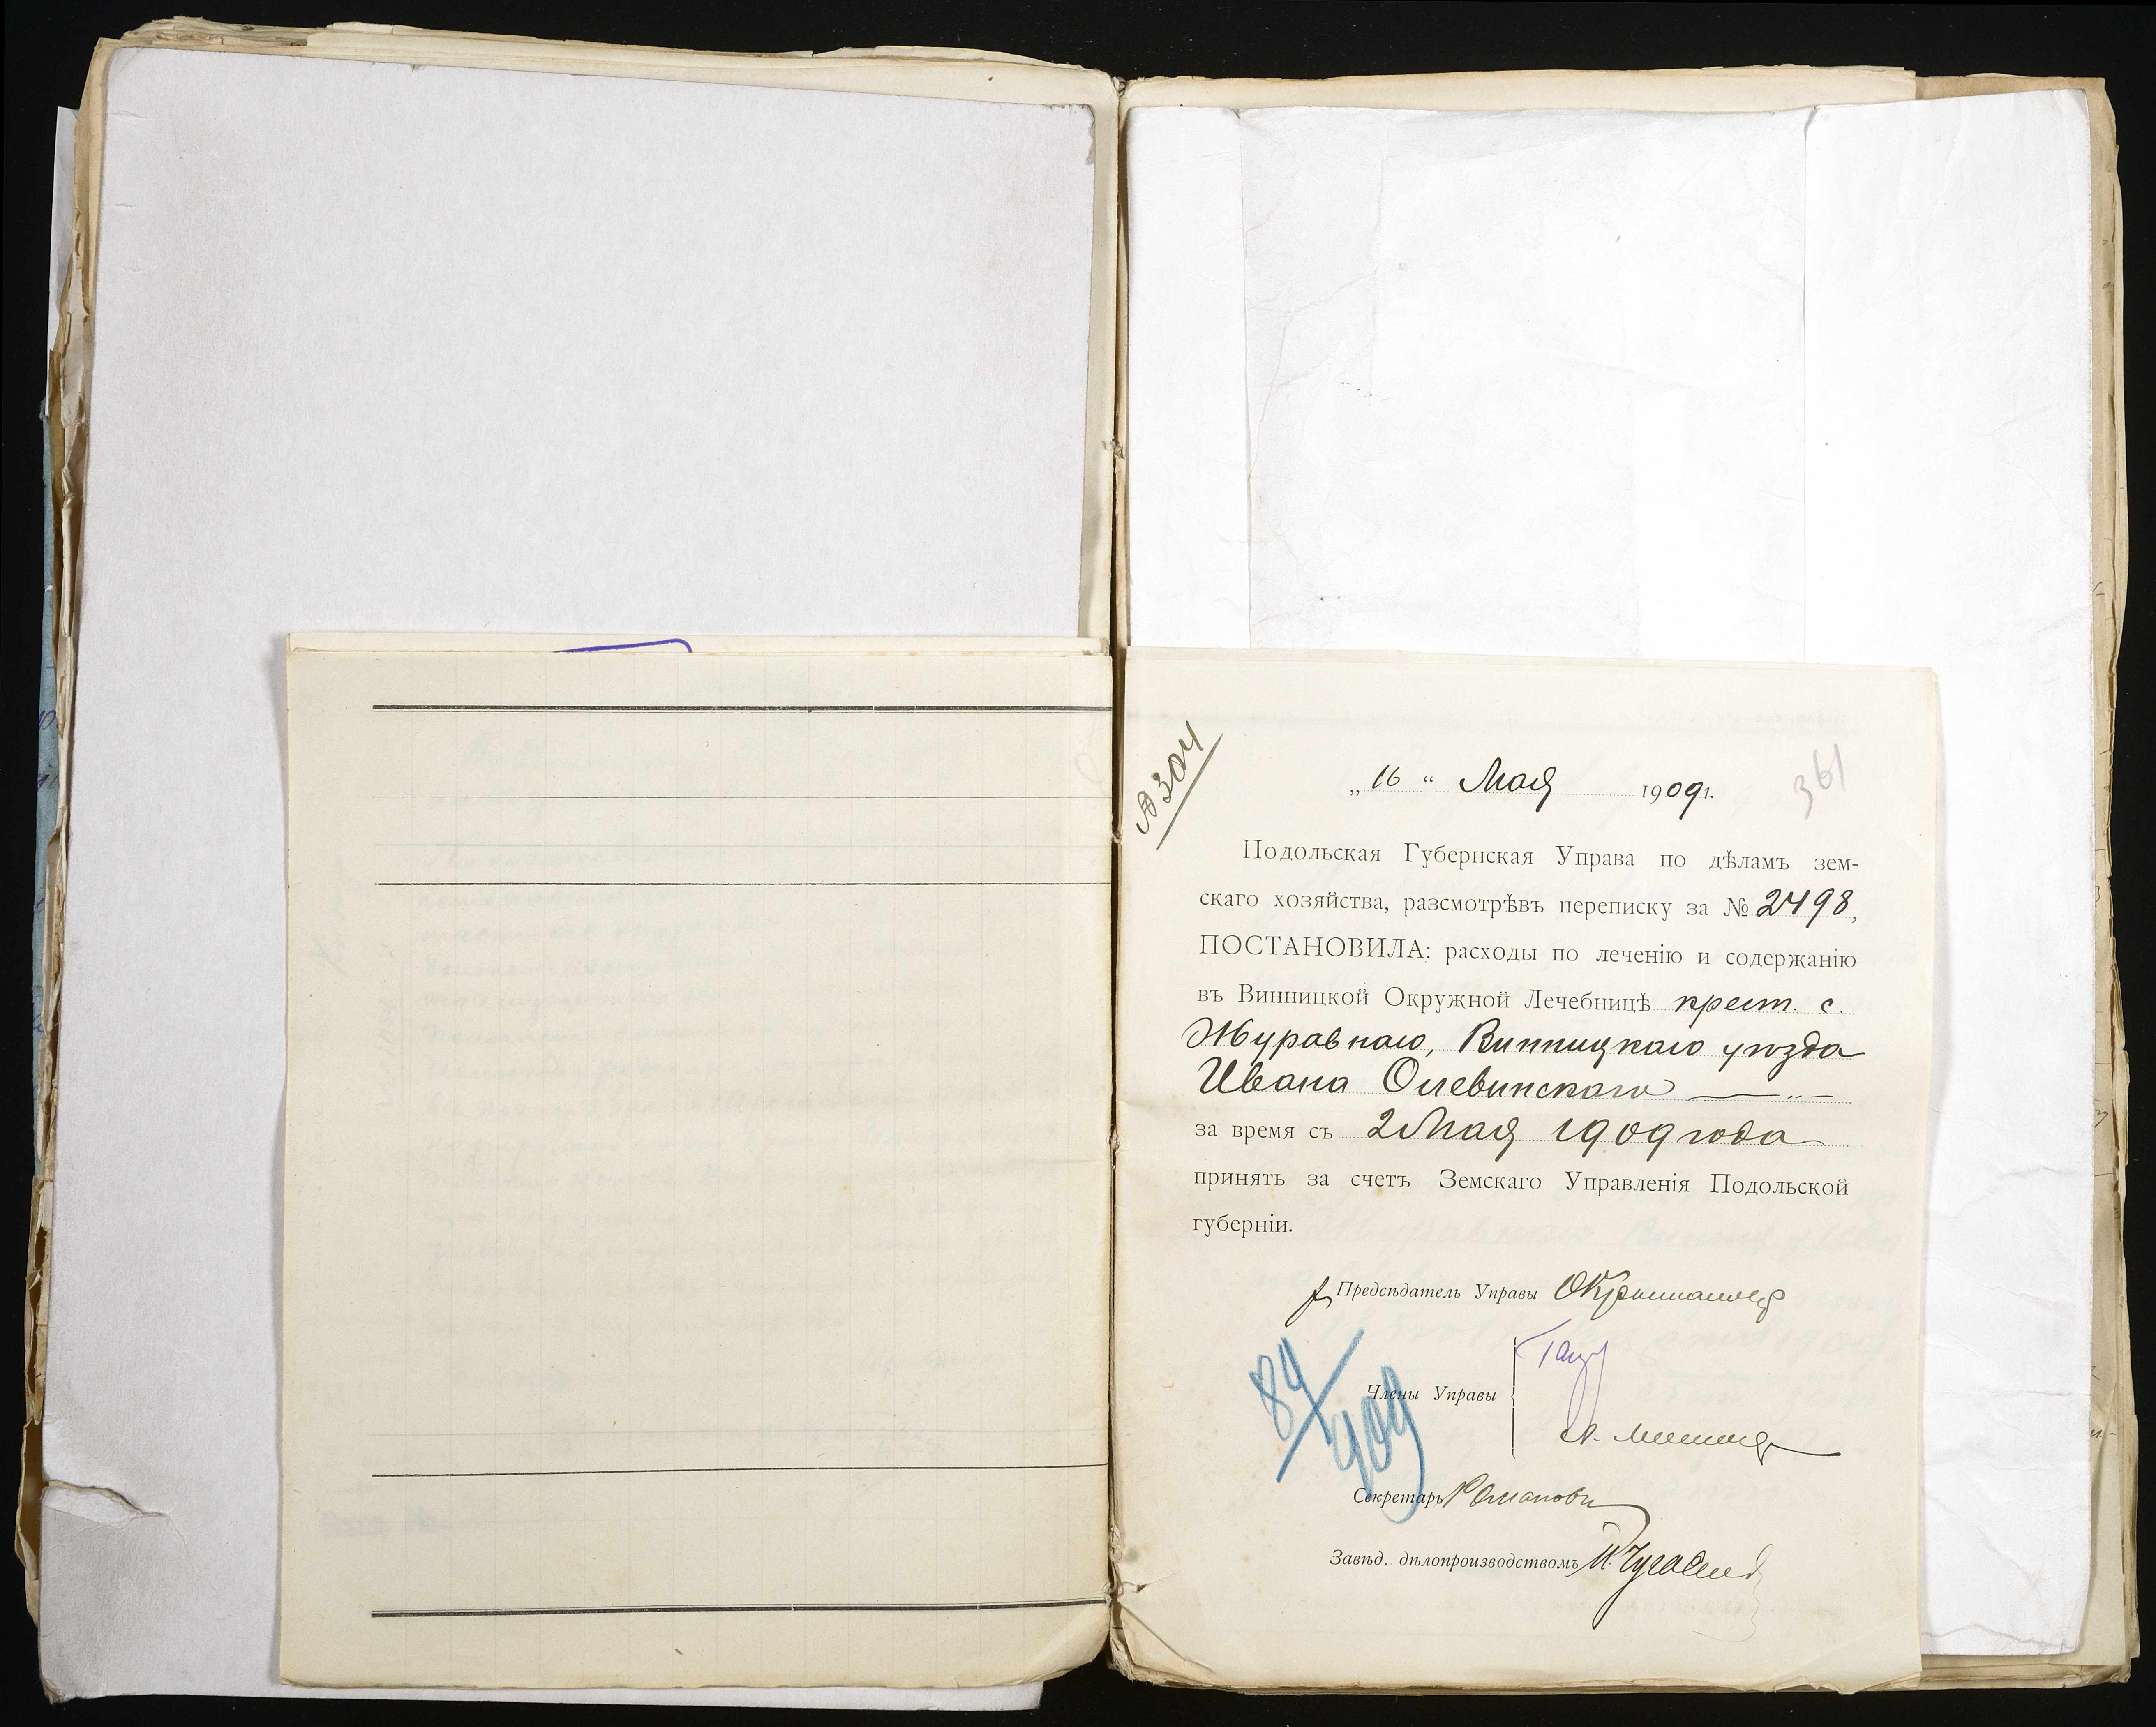 № 304
„ 16 “ Мая 1909 г.
361
Подольская Губернская Управа по дѣламъ зем-
скаго хозяйства, разсмотрѣвъ переписку за № 2498,
ПОСТАНОВИЛА: расходы по леченію и содержанію
въ Винницкой Окружной Лечебницѣ крест. с.
Журавнаго, Винницкаго уѣзда
Ивана Олевинскаго
за время съ 2 Мая 1909 года
принять за счетъ Земскаго Управленія Подольской
губерніи.
Предсѣдатель Управы
84/909
Члены Управы
Секретарь Романовъ
Завѣд. дѣлопроизводствомъ